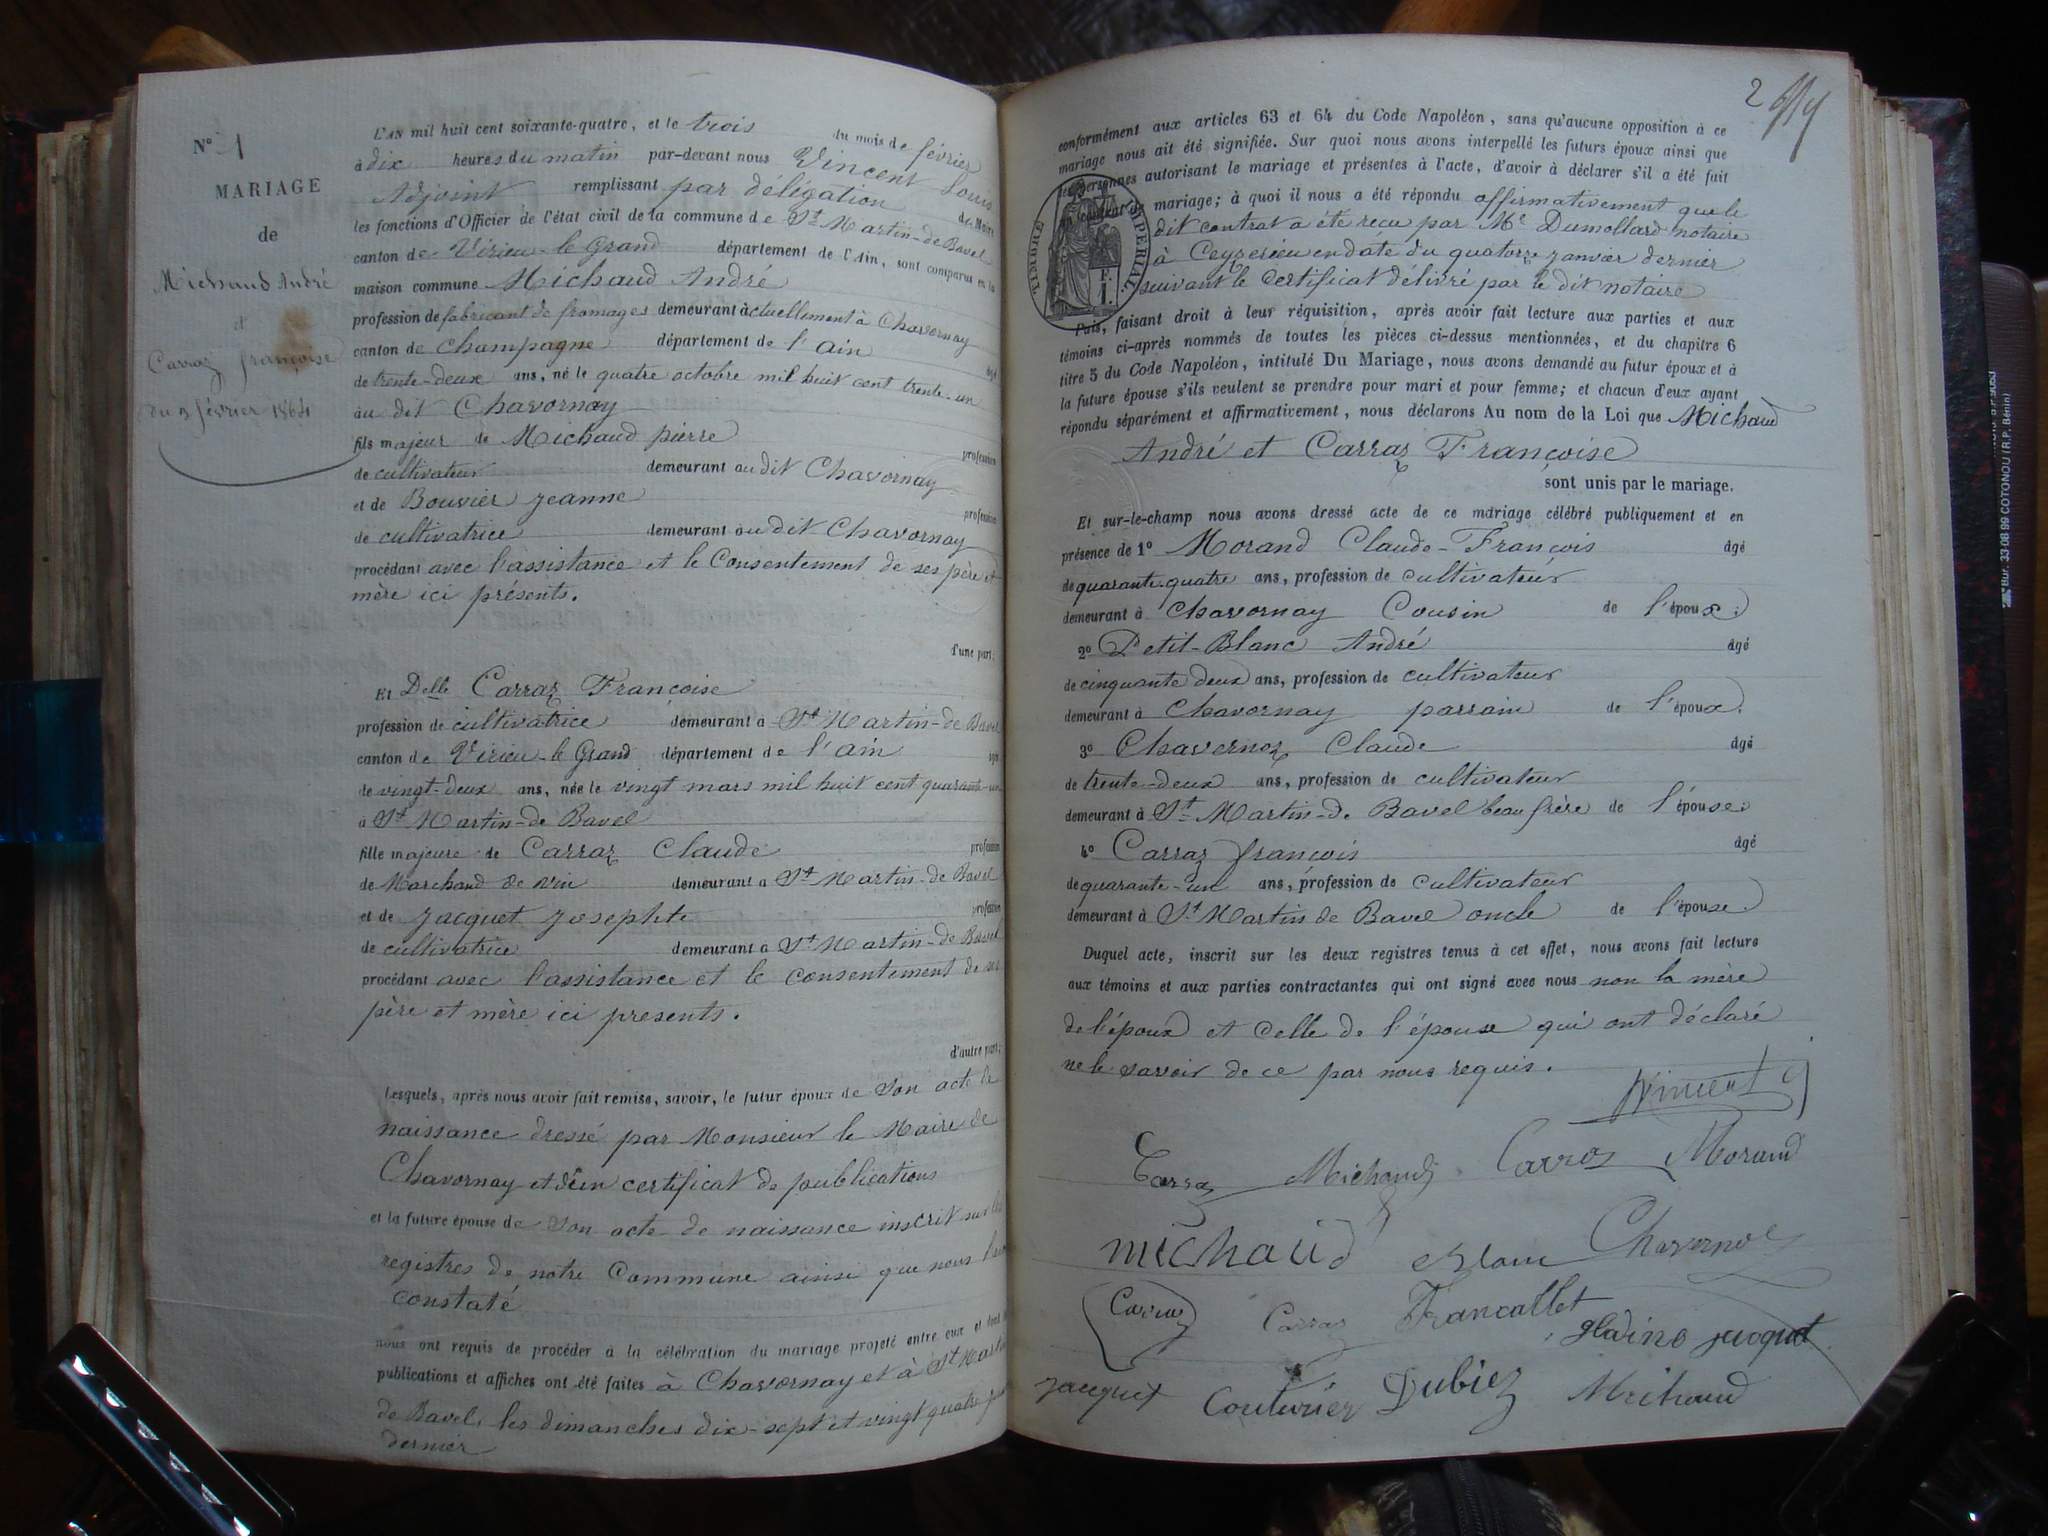 N° 1
MARIAGE
de
Michaud André
et
Carraz françoise
du 3 février 1864
L'AN mil huit cent soixante-quatre, et le trois du mois de février
à dix heures du matin par-devant nous Vincent Louis
Adjoint remplissant par délégation du Maire
les fonctions d'Officier de l'état civil de la commune de St Martin-de Bavel
canton de Virieu-le Grand département de l'Ain, sont comparus en la
maison commune Michaud André
profession de fabricant de fromages demeurant actuellement à Chavornay
canton de Champagne département de l'ain âgé
de trente-deux ans, né le quatre octobre mil huit cent trente-un
au dit Chavornay
fils majeur de Michaud pierre profession
de cultivateur demeurant au dit Chavornay
et de Bouvier jeanne profession
de cultivatrice demeurant au dit Chavornay
procédant avec l'assistance et le Consentement de ses père et
mère ici présents.
d'une part;
Et Delle Carraz Françoise
profession de cultivatrice demeurant à St Martin-de Bavel
canton de Virieu-le Grand département de l'ain âgée
de vingt-deux ans, née le vingt mars mil huit cent quarante-un
à St Martin-de Bavel
fille majeure de Carraz Claude profession
de Marchand de vin demeurant à St Martin-de Bavel
et de Jacquet Josephte profession
de cultivatrice demeurant à St Martin-de Bavel
procédant avec l'assistance et le consentement de ses
père et mère ici presents.
d'autre part;
Lesquels, après nous avoir fait remise, savoir, le futur époux de Son acte de
naissance dressé par Monsieur le Maire de
Chavornay et d'un certificat de publications
et la future épouse de Son acte de naissance inscrit sur les
registres de notre Commune ainsi que nous l'avons
constaté
nous ont requis de procéder à la célébration du mariage projeté entre eux et dont les
publications et affiches ont été faites à Chavornay et à St Martin
de Bavel, les dimanches dix-sept et vingt quatre janvier
dernier
2
conformément aux articles 63 et 64 du Code Napoléon, sans qu'aucune opposition à ce
mariage nous ait été signifiée. Sur quoi nous avons interpellé les futurs époux ainsi que
les personnes autorisant le mariage et présentes à l'acte, d'avoir à déclarer s'il a été fait
un contrat de mariage; à quoi il nous a été répondu affirmativement que le
dit contrat a été reçu par Me Dumollard notaire
à Ceyzerieu en date du quatorze janvier dernier
suivant le certificat délivré par le dit notaire
TIMBRE IMPERIAL
Puis, faisant droit à leur réquisition, après avoir fait lecture aux parties et aux
témoins ci-après nommés de toutes les pièces ci-dessus mentionnées, et du chapitre 6
titre 5 du Code Napoléon, intitulé Du Mariage, nous avons demandé au futur époux et à
la future épouse s'ils veulent se prendre pour mari et pour femme; et chacun d'eux ayant
répondu séparément et affirmativement, nous déclarons Au nom de la Loi que Michaud
André et Carraz Françoise
sont unis par le mariage.
Et sur-le-champ nous avons dressé acte de ce mariage célébré publiquement et en
présence de 1° Morand Claude-François âgé
de quarante-quatre ans, profession de cultivateur
demeurant à Chavornay Cousin de l'époux;
2° Petit-Blanc André âgé
de cinquante deux ans, profession de cultivateur
demeurant à Chavornay parrain de l'époux;
3° Chavernoz Claude âgé
de trente-deux ans, profession de cultivateur
demeurant à St Martin-de Bavel beau frère de l'épouse;
4° Carraz françois âgé
de quarante-un ans, profession de cultivateur
demeurant à St Martin de Bavel oncle de l'épouse.
Duquel acte, inscrit sur les deux registres tenus à cet effet, nous avons fait lecture
aux témoins et aux parties contractantes qui ont signé avec nous non la mère
de l'époux et celle de l'épouse qui ont déclaré
ne le savoir de ce par nous requis.
Vincent
Carraz Michaud Carraz Morand
michaud Blanc Chavernoz
Carraz Carraz Francallet jacquet
jacquet Couturier Dubiez Michaud
Bur. 33 08 99 COTONOU (R.P. Bénin)